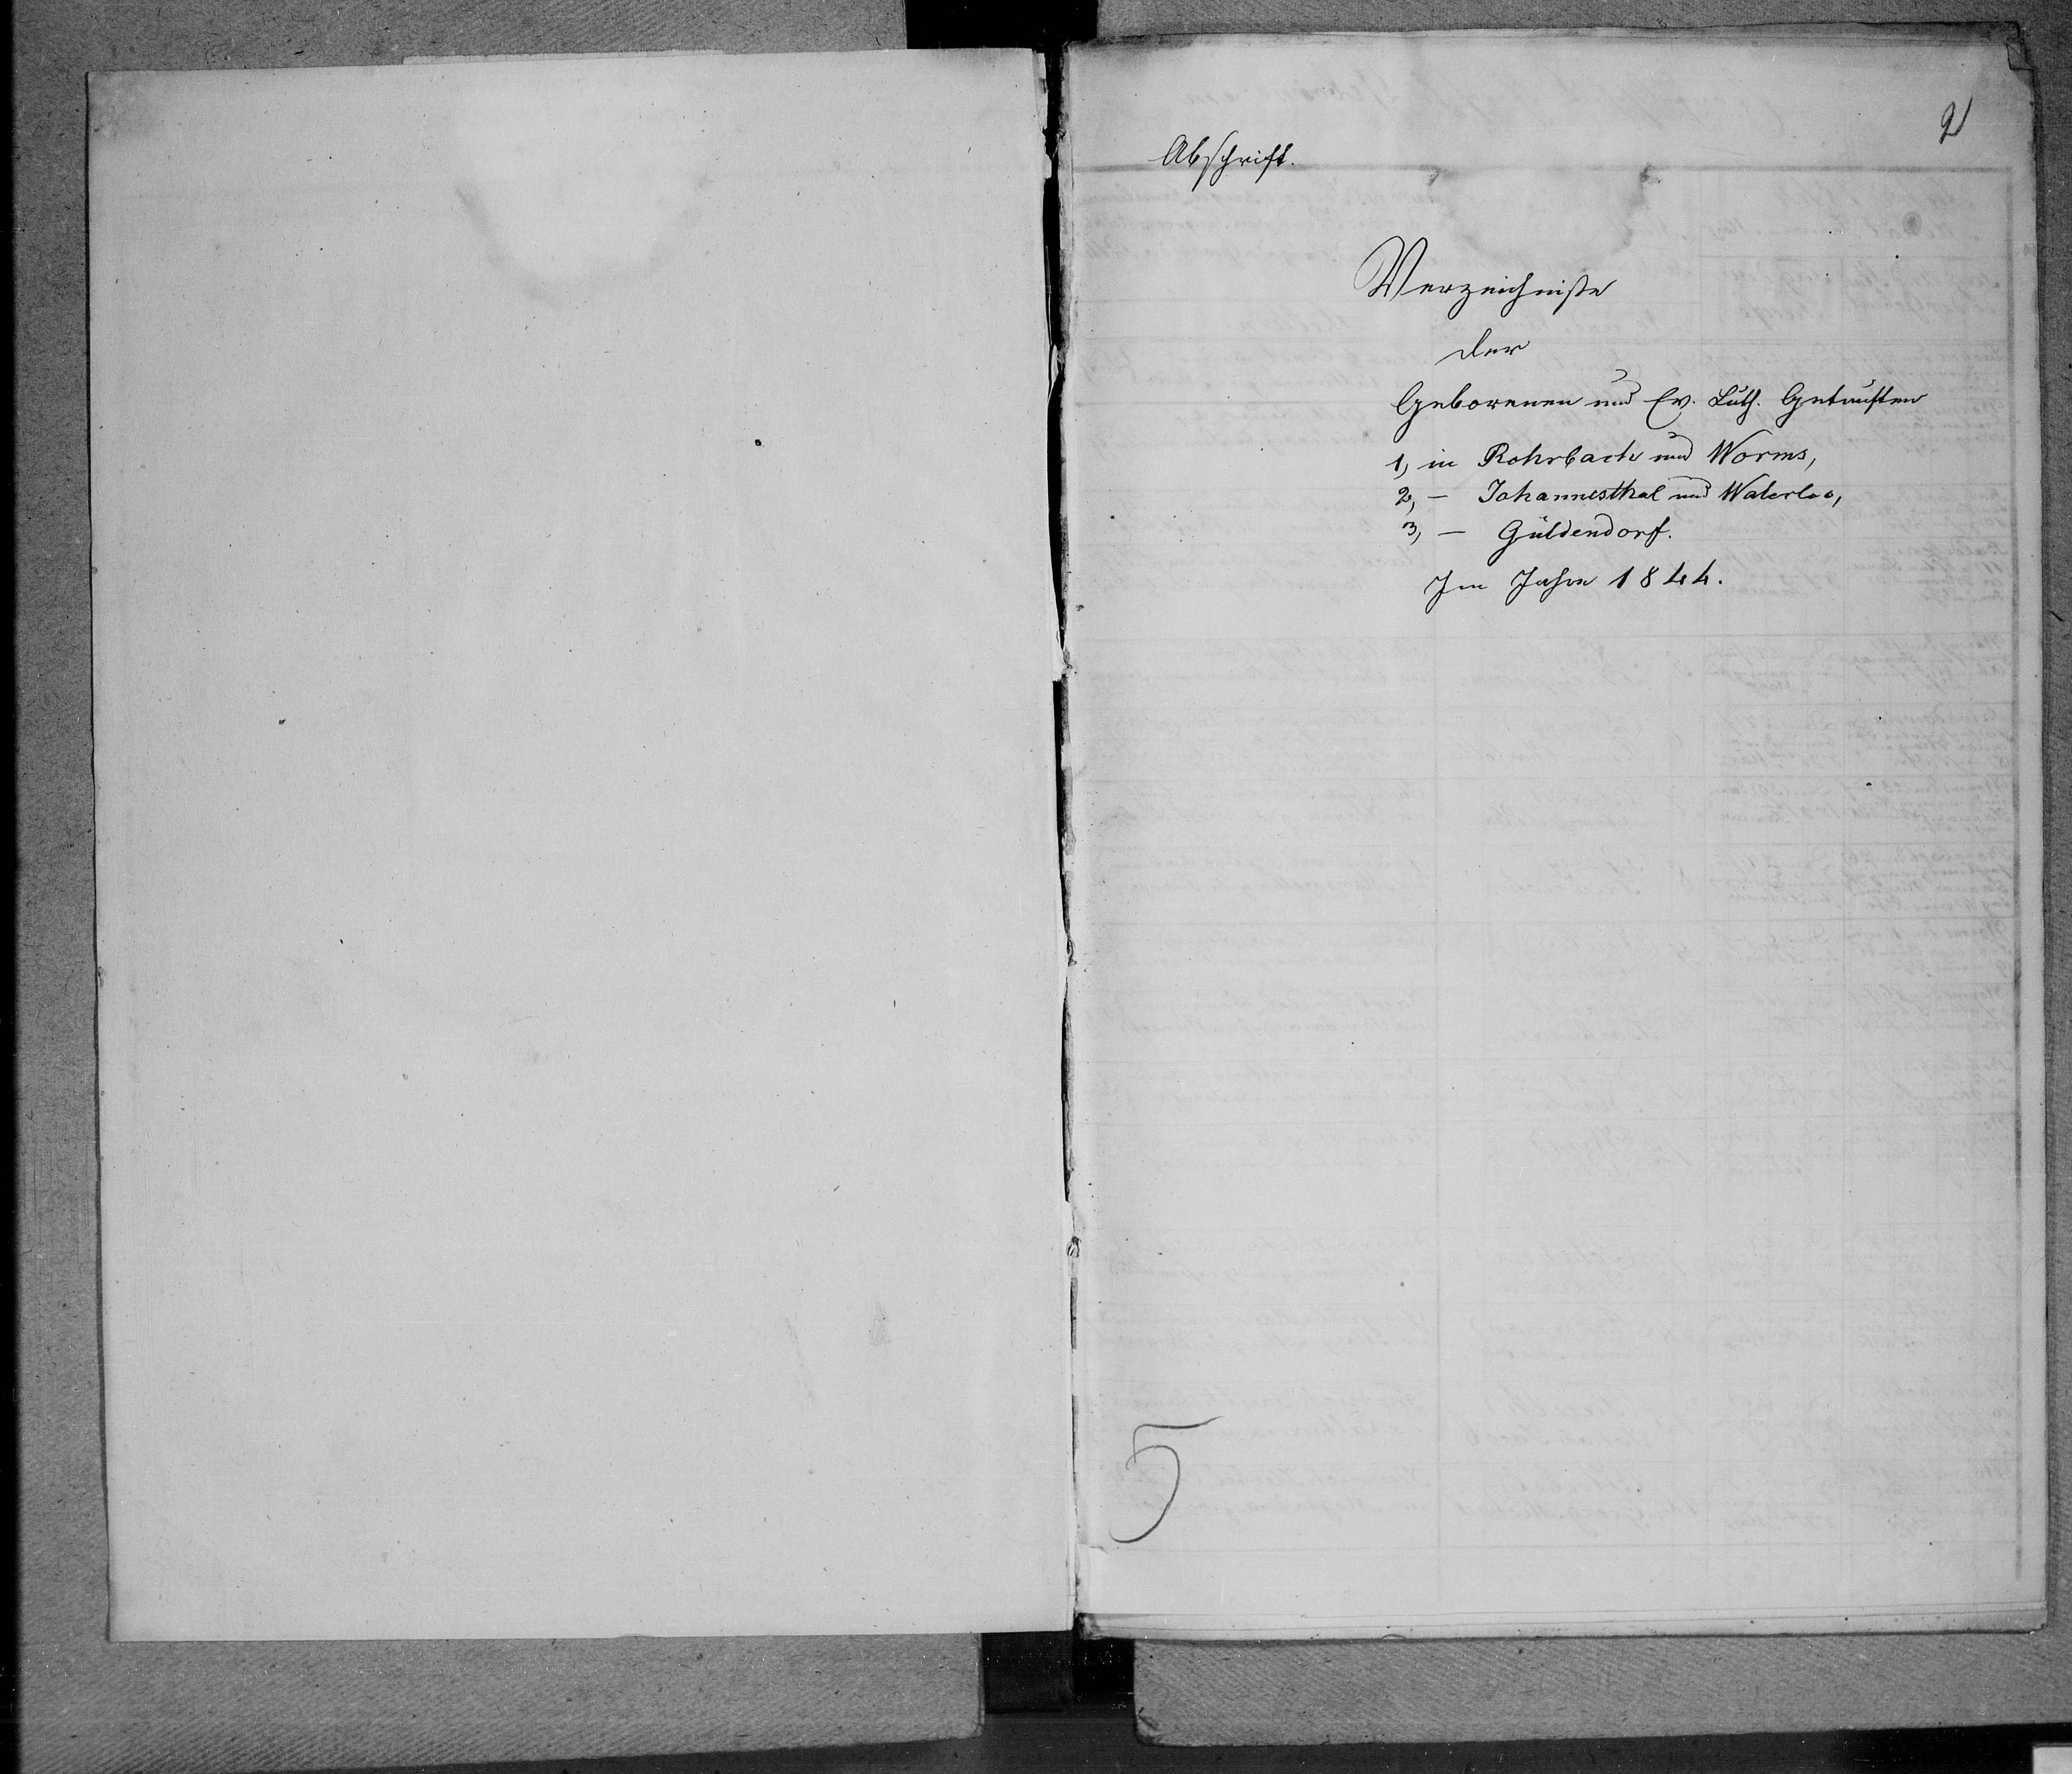 2
Abschrift.
Verzeichniße
der
Geborenen und Ev. Luth. Getauften
1, in Rohrbach und Worms,
2, — Johannesthal und Waterloo,
3, — Güldendorf.
Im Jahre 1844.
5